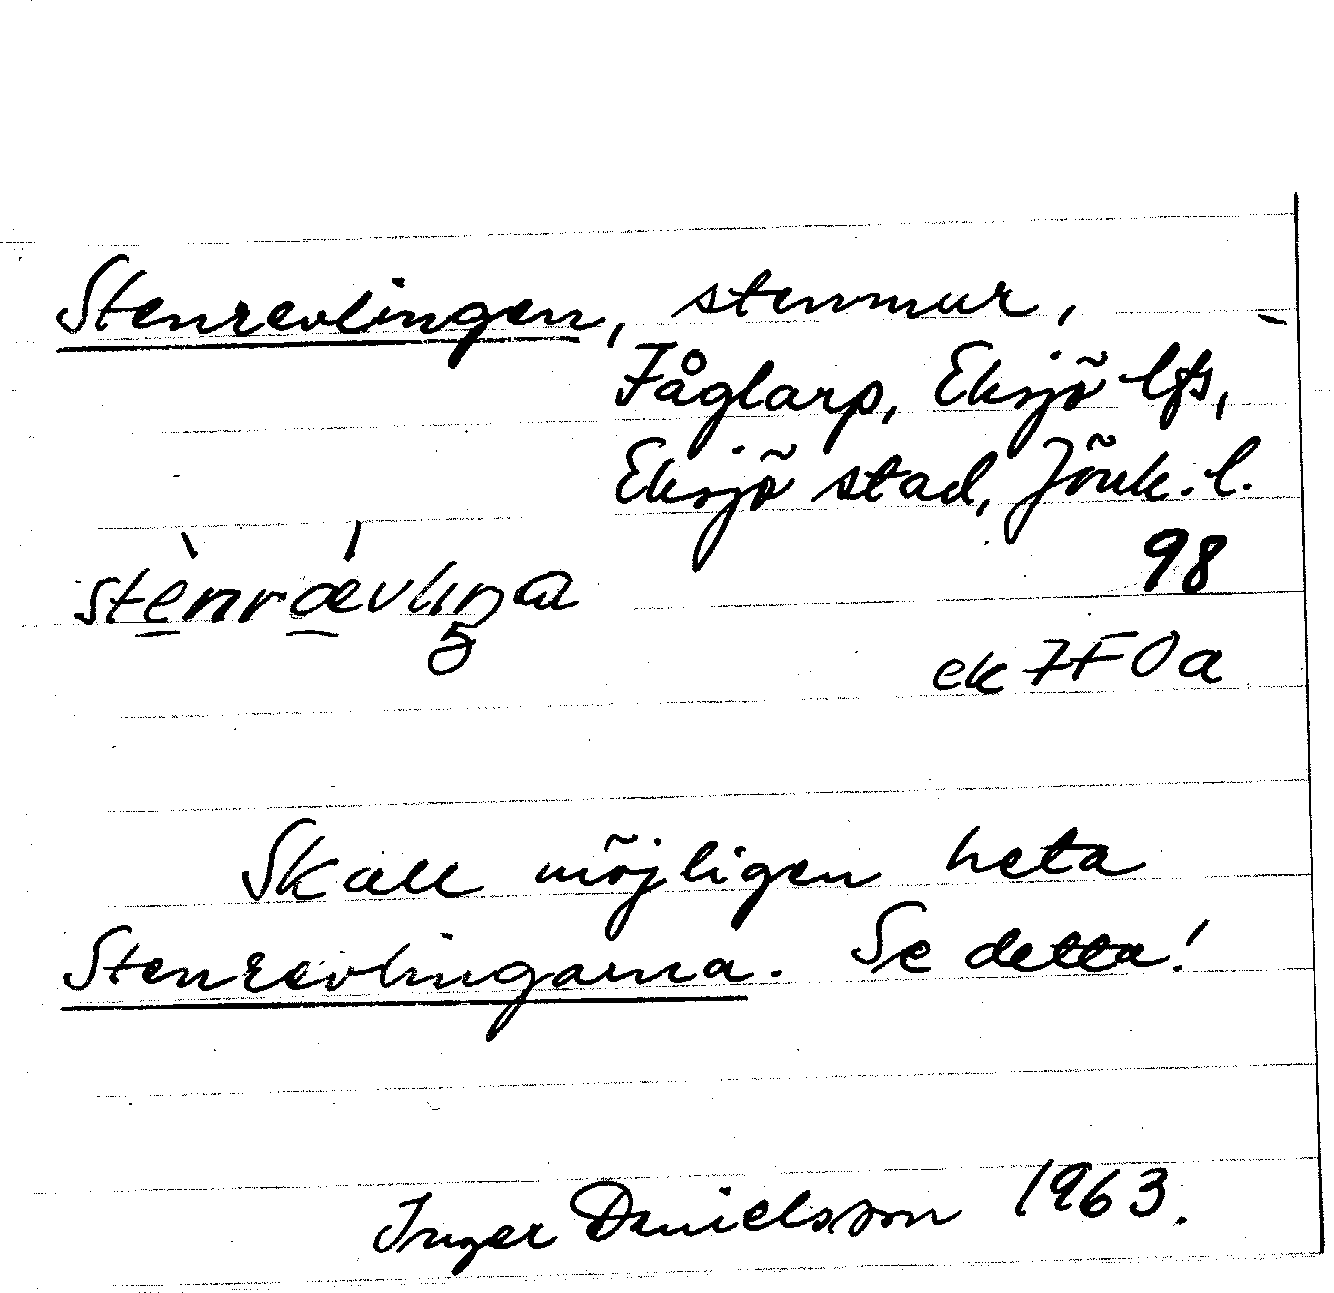 Stenrevlingen, stenmur,
Fåglarp, Eksjö lfs,
Eksjö stad, Jönk. l.
98
stènrǽvlıŋa
ek 7F0a
Skall möjligen heta
Stenrevlingarna. Se detta!
Inger Danielsson 1963.